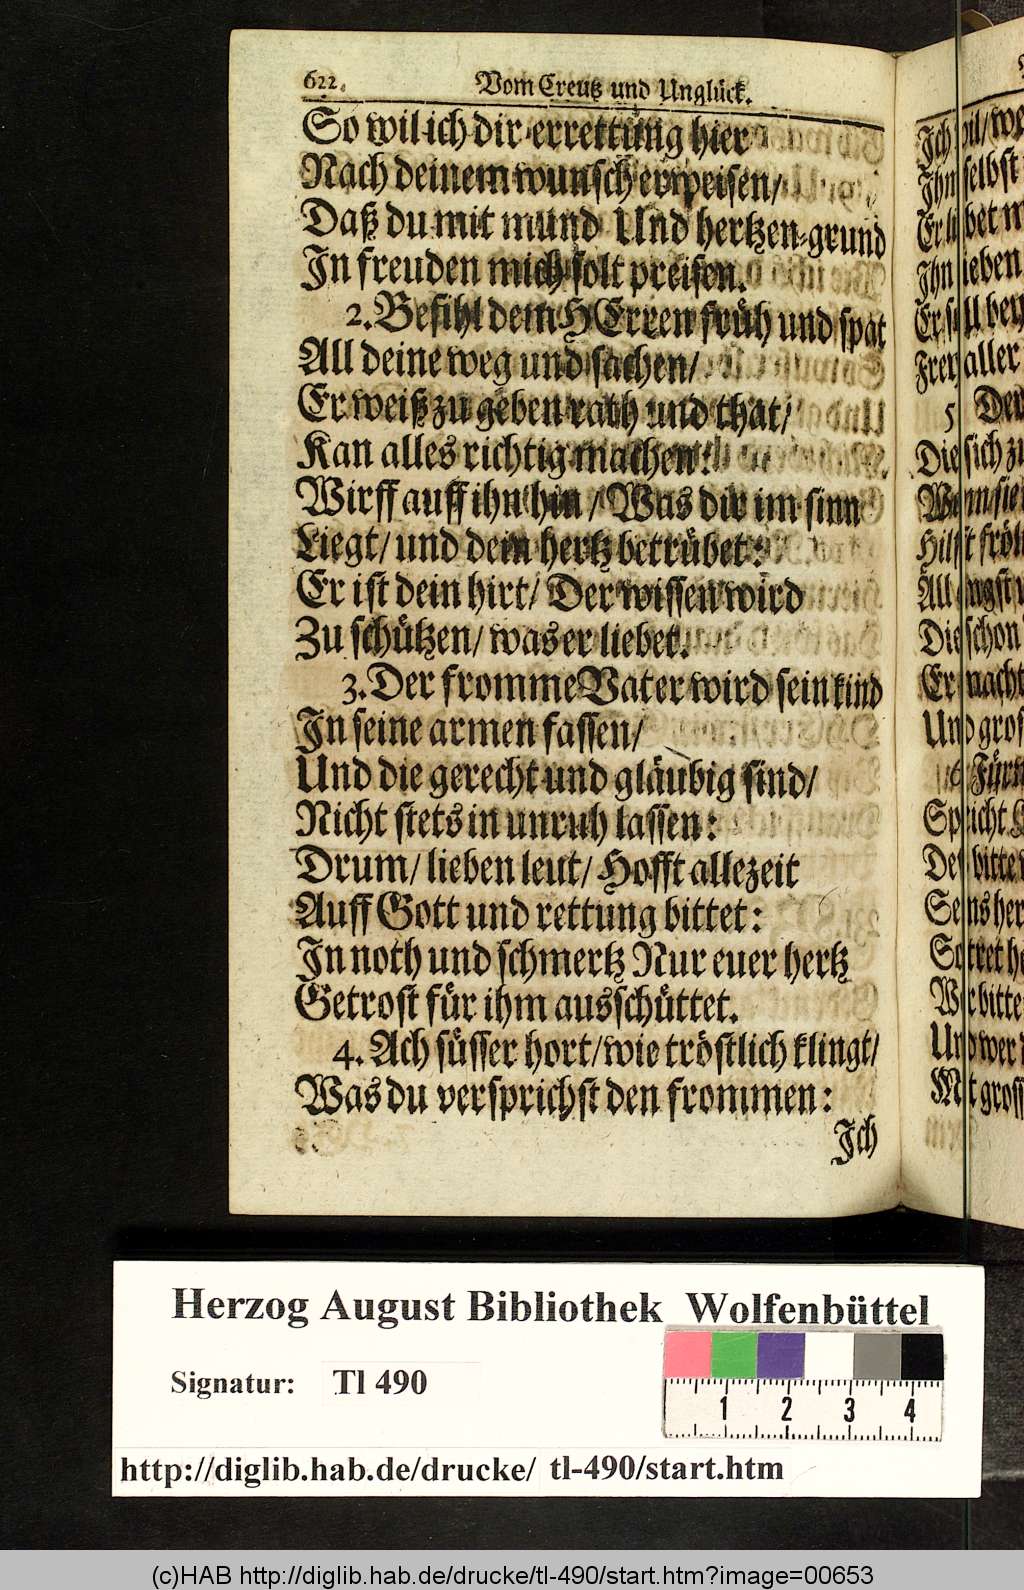 622. Vom Creutz und Unglück.
So wil ich dir errettung hier
Nach deinem wunsch erweisen/
Daß du mit mund Und hertzen-grund
In freuden mich solt preisen.
2. Befihl dem HErren früh und spat
All deine weg und sachen/
Er weiß zu geben rath und that/
Kan alles richtig machen:
Wirff auff ihn hin / Was dir im sinn
Liegt/ und dein hertz betrübet:
Er ist dein hirt/ Der wissen wird
Zu schützen/ was er liebet.
3. Der fromme Vater wird sein kind
In seine armen fassen/
Und die gerecht und gläubig sind/
Nicht stets in unruh lassen:
Drum/ lieben leut/ Hofft allezeit
Auff Gott und rettung bittet:
In noth und schmertz Nur euer hertz
Getrost für ihm ausschüttet.
4. Ach süsser hort/ wie tröstlich klingt/
Was du versprichst den frommen:
Ich
Ich wil/
Ihn selbst
Ihn lieben
aller
5 Den
Die sich zu
Wann sie
Die schon
Und gros
Spricht
bitte
tret
Und wer
Mit gross
Herzog August Bibliothek Wolfenbüttel
Signatur: Tl 490
1 2 3 4
http://diglib.hab.de/drucke/ tl-490/start.htm
(c)HAB http://diglib.hab.de/drucke/tl-490/start.htm?image=00653